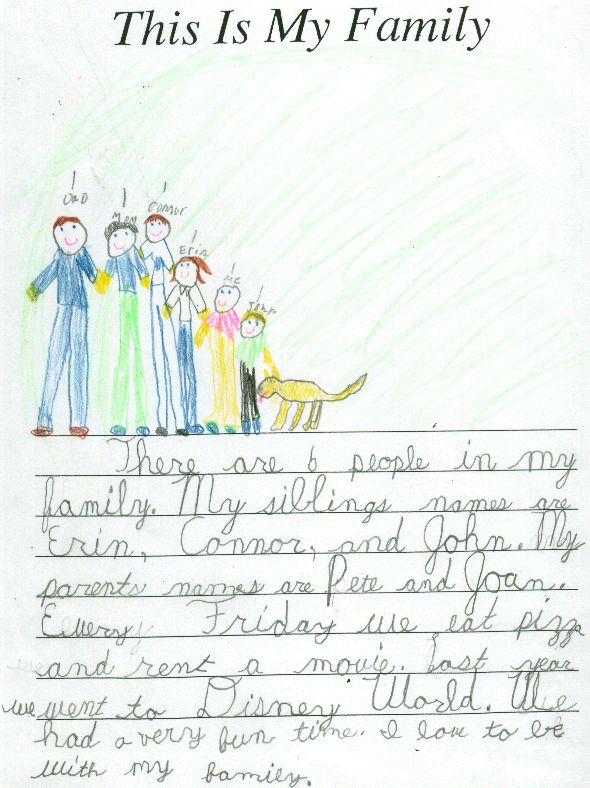 This Is My Family
DAD
Mom
Connor
Erin
ME
John
There are 6 people in my
family. My siblings names are
Erin, Connor, and John. My
parents names are Pete and Joan.
Every Friday we eat pizza
and rent a movie. Last year
we went to Disney World. We
had a very fun time. I love to be
with my family.